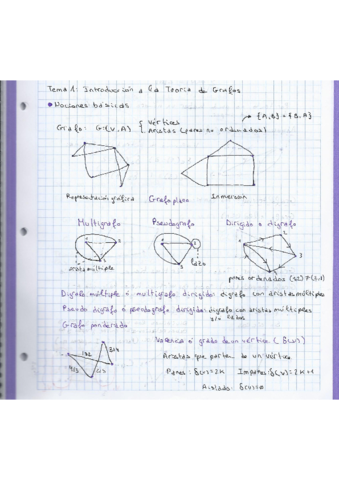 Tema 1: Introducción a la Teoría de Grafos
Nociones básicas
{A,B} = {B,A}
Grafo: G=(V,A) { Vértices
Aristas (pares no ordenados)
Representación gráfica
Grafo plano
Inmersión
Multigrafo
Pseudografo
Dirigido o digrafo
arista múltiple
lazo
pares ordenados (1,2) ≠ (2,1)
Digrafo múltiple o multigrafo dirigido: digrafo con aristas múltiples
Pseudo digrafo o pseudografo dirigido: digrafo con aristas múltiples
y/o lazos
Grafo ponderado
Valencia o grado de un vértice (δ(v))
Aristas que parten de un vértice
Pares: δ(v)=2K Impares: δ(v)=2K+1
Aislado: δ(v)=0